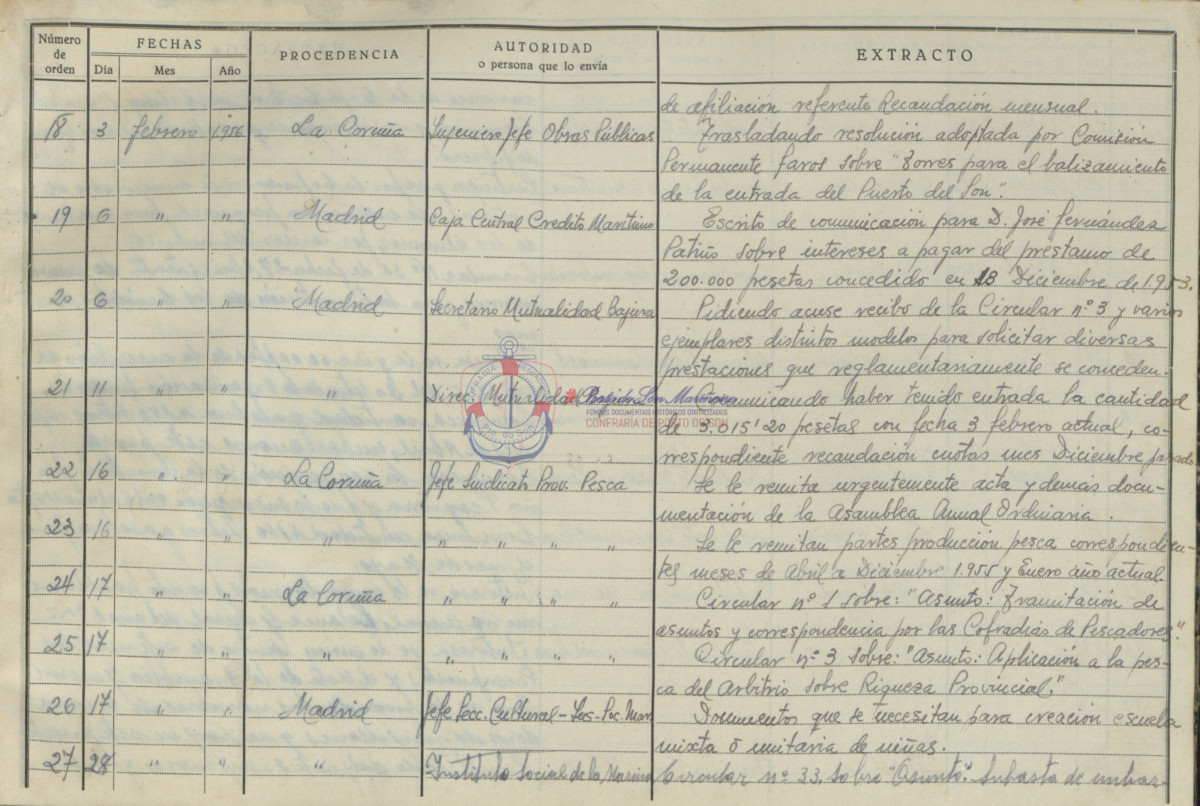 Número de orden FECHAS Día Mes Año PROCEDENCIA AUTORIDAD o persona que lo envía EXTRACTO
de afiliación referente Recaudación mensual.
18 3 febrero 1.956 La Coruña Ingeniero Jefe Obras Públicas Trasladando resolución adoptada por Comisión
Permanente faros sobre "Torres para el balizamiento
de la entrada del Puerto del Son".
19 6 " " Madrid Caja Central Credito Maritimo Escrito de comunicación para D. José Fernández
Patiño sobre intereses a pagar del prestamo de
200.000 pesetas concedido en 13 Diciembre de 1.953.
20 6 " " Madrid Secretario Mutualidad Bajura Pidiendo acuse recibo de la Circular nº 3 y varios
ejemplares distintos modelos para solicitar diversas
prestaciones que reglamentariamente se conceden.
21 11 " " " Direc. Mutualidad Comunicando haber tenido entrada la cantidad
de 3.015'20 pesetas con fecha 3 febrero actual, co-
rrespondiente recaudación cuotas mes Diciembre pasado
22 16 " " La Coruña Jefe Sindicato Prov. Pesca Se le remita urgentemente acta y demás docu-
mentación de la Asamblea Anual Ordinaria.
23 16 " " " " " " " Se le remitan partes producción pesca correspondien-
tes meses de Abril a Diciembre 1.955 y Enero año actual.
24 17 " " La Coruña " " " " Circular nº 1 sobre: "Asunto: Tramitación de
asuntos y correspondencia por las Cofradias de Pescadores".
25 17 " " " " " " " Circular nº 3 sobre: "Asunto: Aplicación a la pes-
ca del Arbitrio sobre Riqueza Provincial."
26 17 " " Madrid Jefe Secc. Cultural - Documentos que se necesitan para creación escuela
mixta ó unitaria de niñas.
27 28 " " " Instituto Social de la Marina Circular nº 33, sobre "Asunto": Subasta de embar-
CONFRARÍA
PORTO DO SON
FONDOS DOCUMENTAIS HISTÓRICOS DIGITALIZADOS
CONFRARÍA DE PORTO DO SON